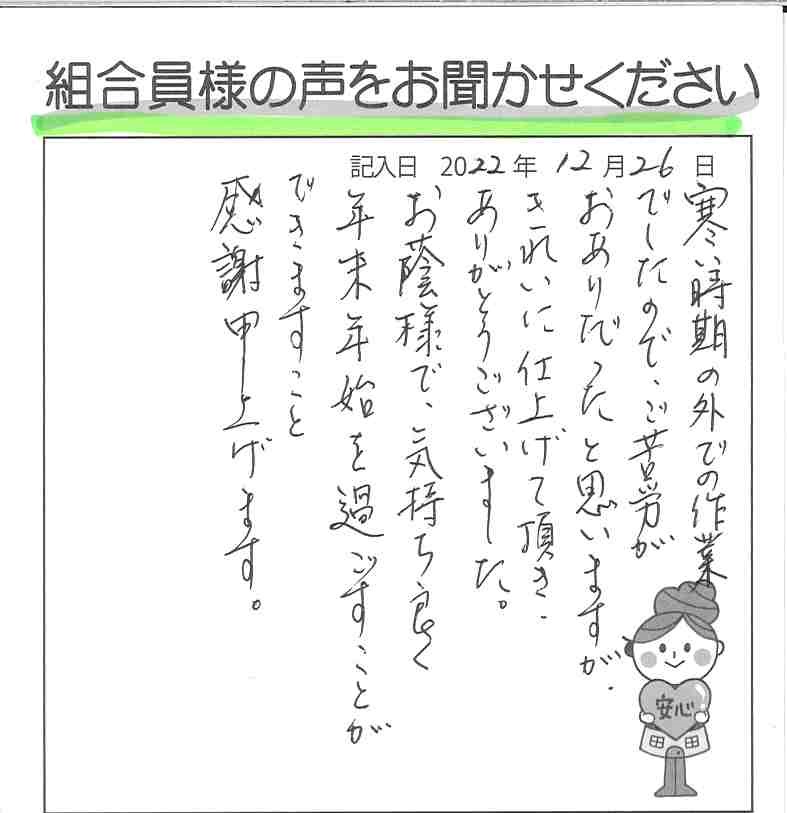 組合員様の声をお聞かせください
記入日 2022年 12月26日
寒い時期の外での作業
でしたので、ご苦労が
おありだったと思いますが、
きれいに仕上げて頂き、
ありがとうございました。
お蔭様で、気持ち良く
年末年始を過ごすことが
できますこと
感謝申し上げます。
安心